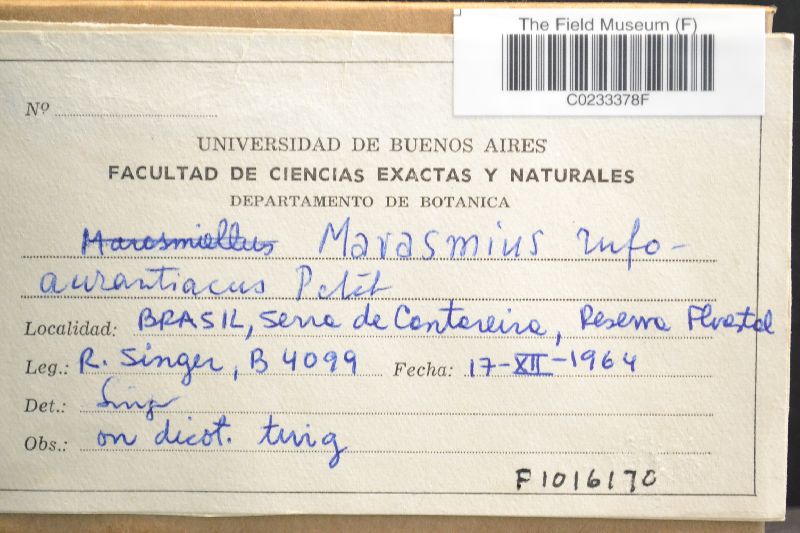 The Field Museum (F)
C0233378F
Nº
UNIVERSIDAD DE BUENOS AIRES
FACULTAD DE CIENCIAS EXACTAS Y NATURALES
DEPARTAMENTO DE BOTANICA
Marasmiellus Marasmius rufo-
aurantiacus
Localidad: BRASIL, Serra de Cantareira, Reserva Florestal
Leg.: R. Singer, B 4099 Fecha: 17-XII-1964
Det.: Singer
Obs.: on dicot. twig
F1016170